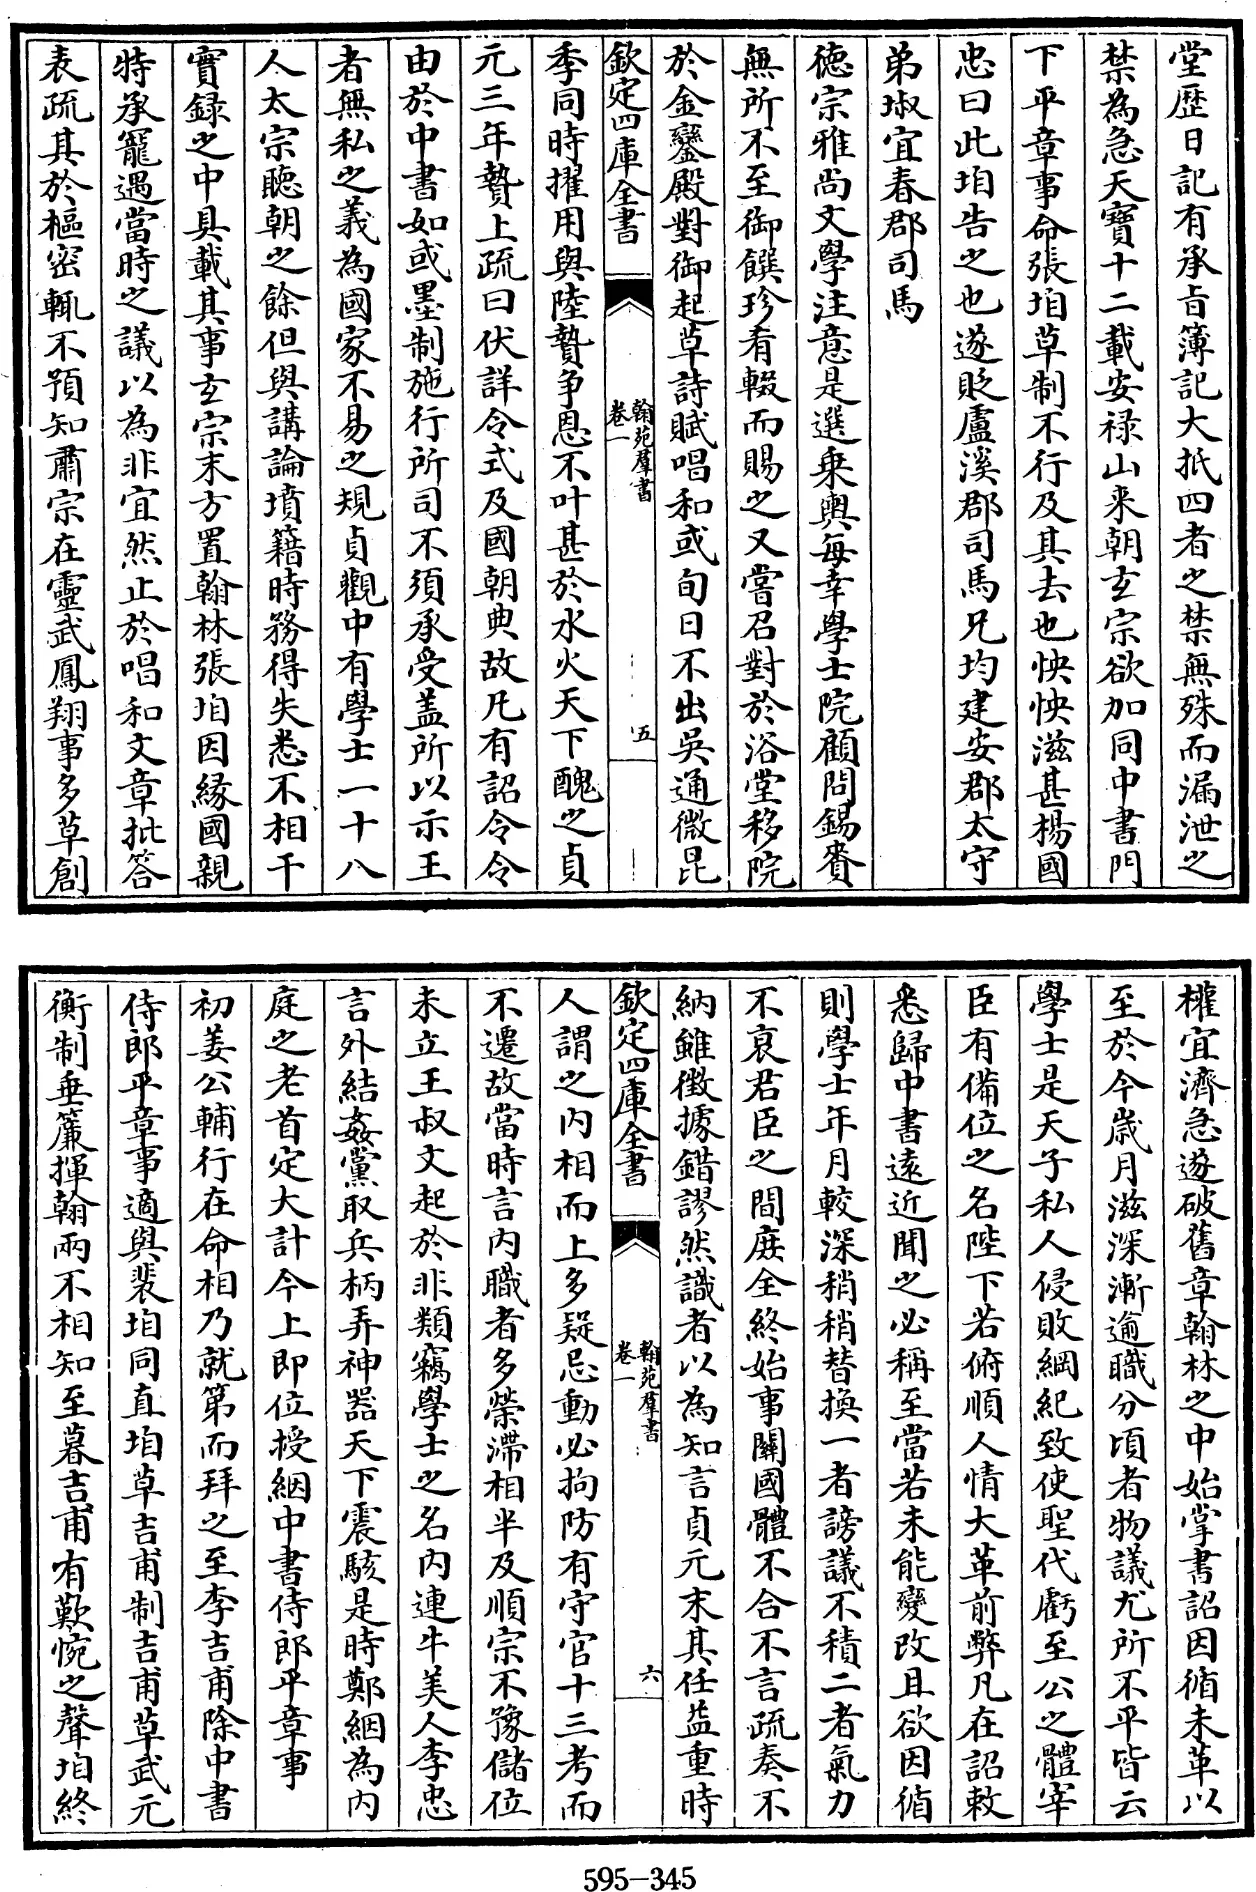 堂歷日記有承旨簿記大抵四者之禁無殊而漏泄之
禁為急天寶十二載安祿山来朝玄宗欲加同中書門
下平章事命張垍草制不行及其去也怏怏滋甚楊國
忠曰此垍告之也遂貶盧溪郡司馬兄均建安郡太守
弟埱宜春郡司馬
德宗雅尚文學注意是選乗輿每幸學士院顧問錫賚
無所不至御饌珍肴輟而賜之又嘗召對於浴堂移院
於金鑾殿對御起草詩賦唱和或旬日不出吳通微昆
欽定四庫全書
翰苑羣書
卷一
五
季同時擢用與陸贄争恩不叶甚於水火天下醜之貞
元三年贄上疏曰伏詳令式及國朝典故凡有詔令令
由於中書如或墨制施行所司不須承受盖所以示王
者無私之義為國家不易之規貞觀中有學士一十八
人太宗聽朝之餘但與講論墳籍時務得失悉不相干
實録之中具載其事玄宗末方置翰林張垍因緣國親
特承寵遇當時之議以為非宜然止於唱和文章批答
表疏其於樞密輒不預知肅宗在靈武鳳翔事多草創
權宜濟急遂破舊章翰林之中始掌書詔因循未革以
至於今歲月滋深漸逾職分頃者物議尤所不平皆云
學士是天子私人侵敗綱紀致使聖代虧至公之體宰
臣有備位之名陛下若俯順人情大革前弊凡在詔敕
悉歸中書遠近聞之必稱至當若未能變改且欲因循
則學士年月較深稍稍替換一者謗議不積二者氣力
不衰君臣之間庶全終始事關國體不合不言疏奏不
納雖徴據錯謬然識者以為知言貞元末其任益重時
欽定四庫全書
翰苑羣書
卷一
六
人謂之内相而上多疑忌動必拘防有守官十三考而
不遷故當時言内職者多榮滯相半及順宗不豫儲位
未立王叔文起於非類竊學士之名内連牛美人李忠
言外結姦黨取兵柄弄神器天下震駭是時鄭絪為内
庭之老首定大計今上即位授絪中書侍郎平章事
初姜公輔行在命相乃就第而拜之至李吉甫除中書
侍郎平章事適與裴垍同直垍草吉甫制吉甫草武元
衡制垂簾揮翰兩不相知至暮吉甫有歎惋之聲垍終
595-345